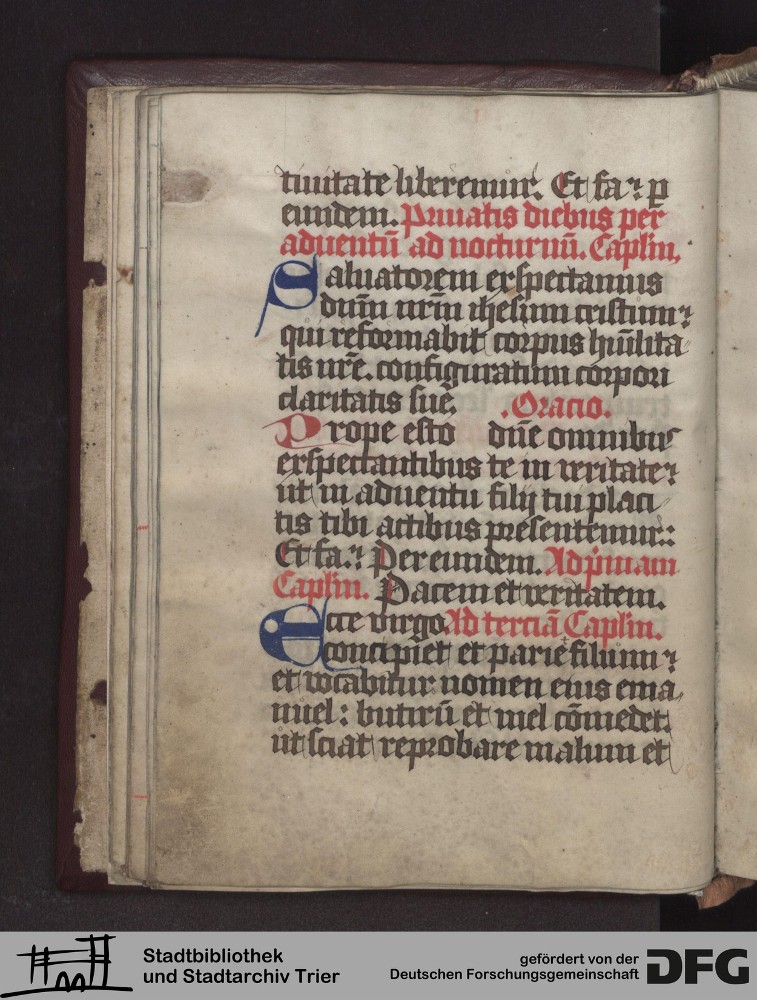 tiuitate liberemur. Et fa⁊ ꝑ
eundem. Priuatis diebus per
aduentū ad nocturnū. Caplm.
Saluatorem exspectamus
dnm nrm ihesum cristum⁊
qui reformabit corpus hūilita
tis nre. configuratum corpori
claritatis sue. .Oracio.
Prope esto dne omnibus
exspectantibus te in veritate⁊
ut in aduentu filij tui placi
tis tibi actibus presentemur::
Et fa.⁊ Per eundem. Ad primam
Caplm. Pacem et veritatem.
Ecce virgo Ad terciā Caplm.
concipiet et pariet filium⁊
et vocabitur nomen eius ema
nuel: butirū et mel cōmedet.
ut sciat reprobare malum et
Stadtbibliothek
und Stadtarchiv Trier
gefördert von der
Deutschen Forschungsgemeinschaft
DFG